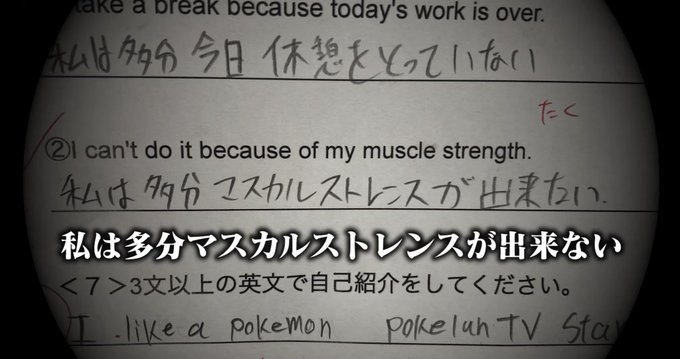 take a break because today's work is over.
私は多分 今日 休憩をとっていない
たく
②I can't do it because of my muscle strength.
私は 多分 マスカルストレンスが 出来ない.
私は多分マスカルストレンスが出来ない
<7>3文以上の英文で自己紹介をしてください。
I like a pokemon pokelun TV Sta